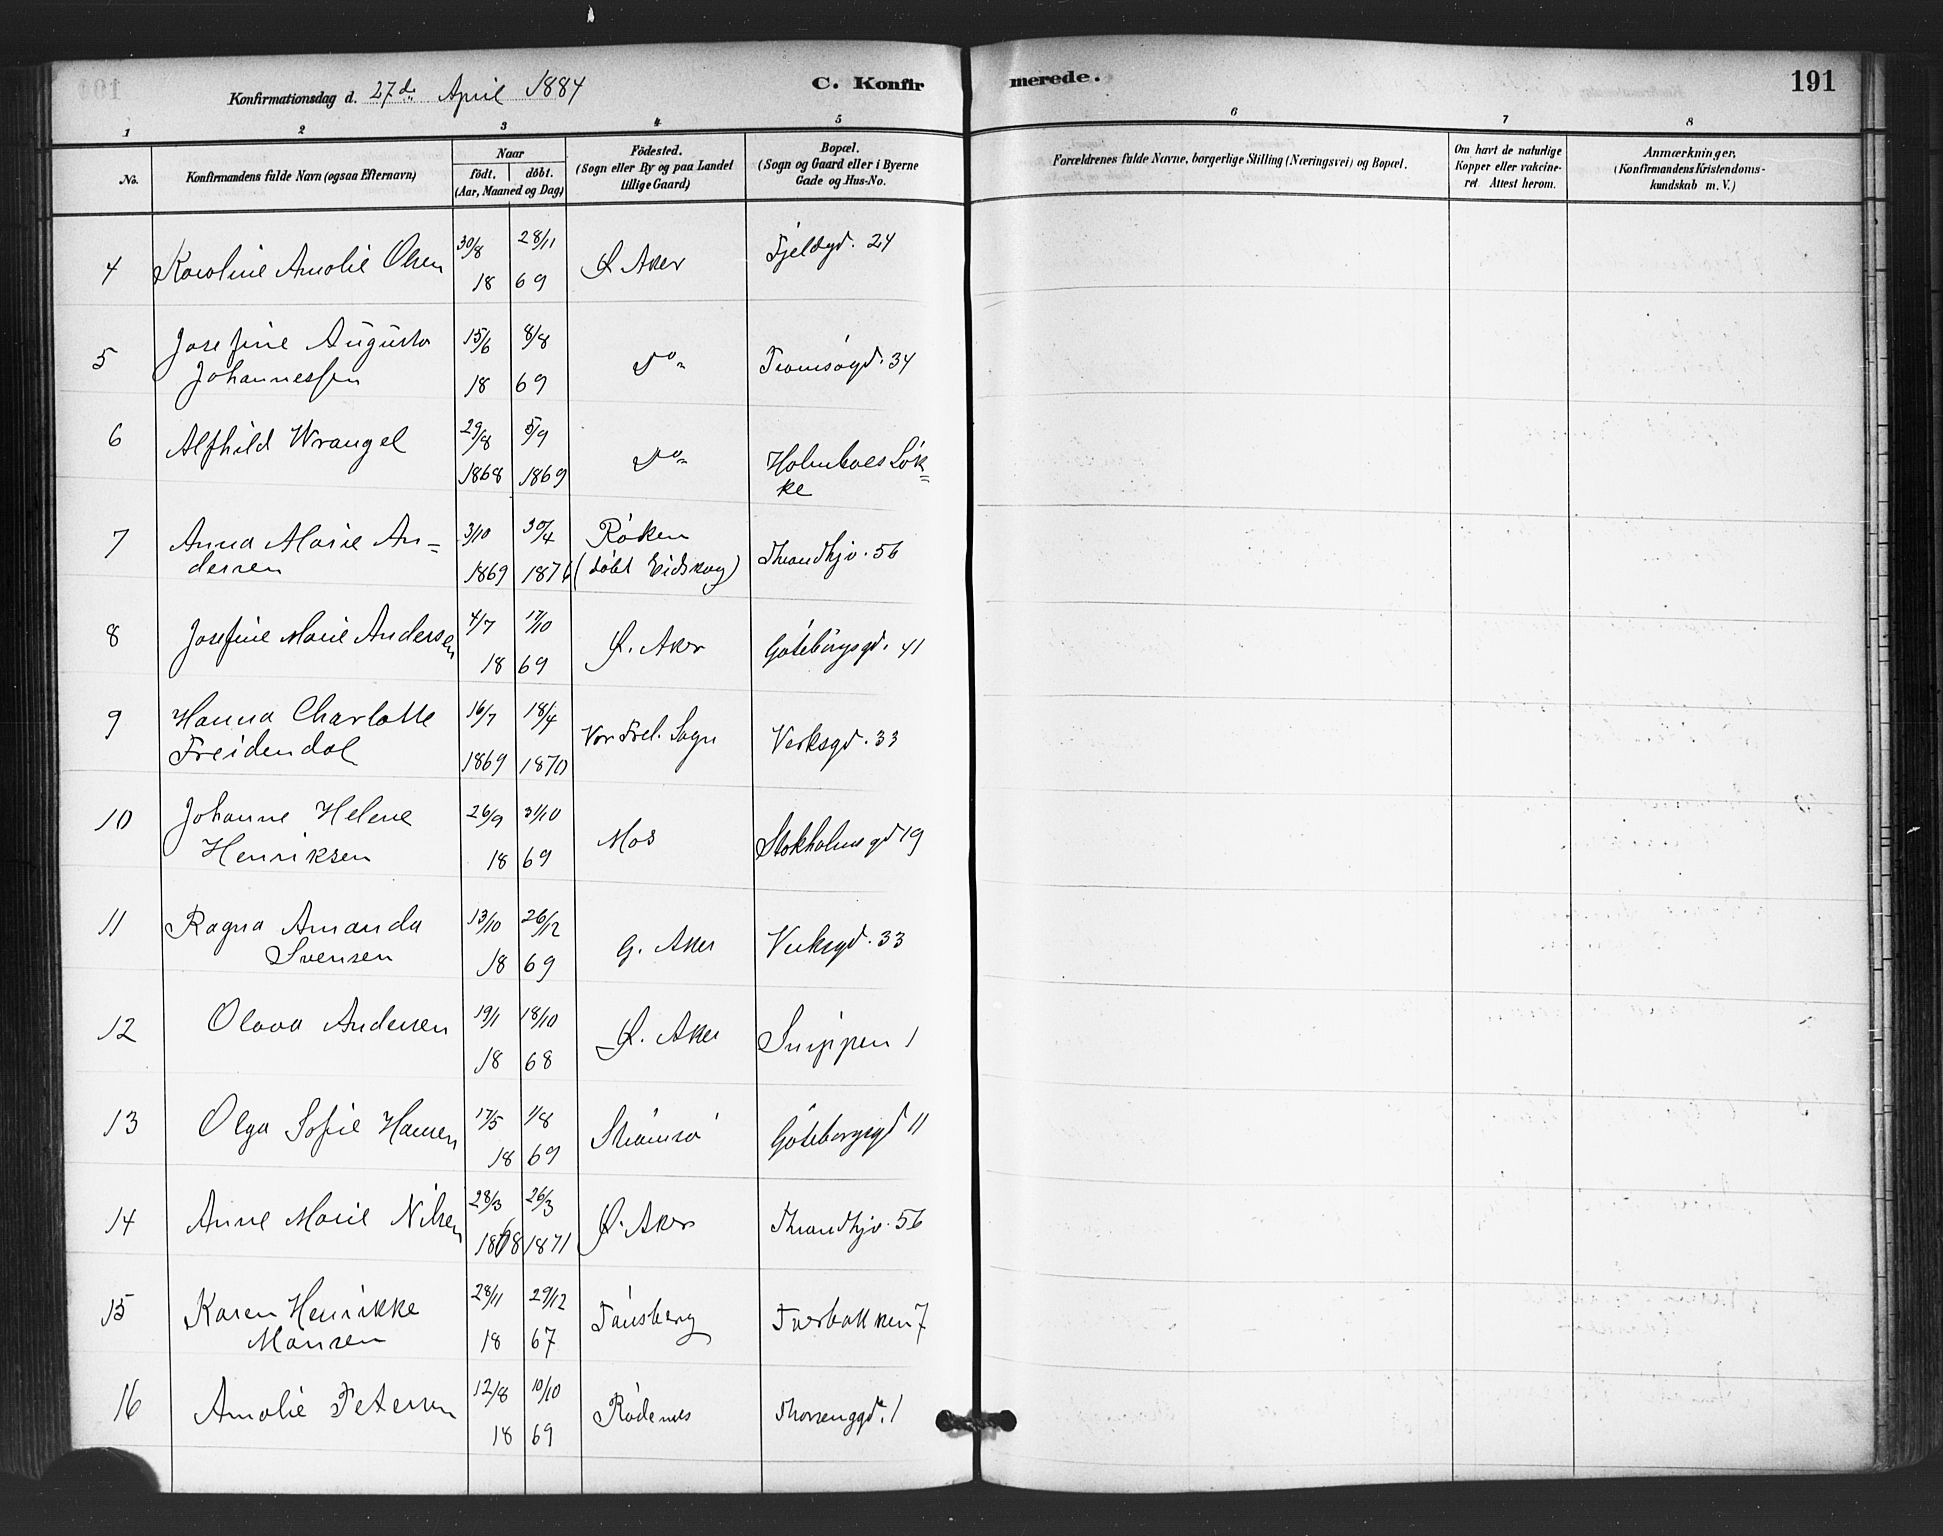 Konfirmationsdag d. 27d. April 1884
C. Konfirmerede.
191
1 2 3 4 5 6 7 8
No.
Konfirmandens fulde Navn (ogsaa Efternavn)
Naar
födt. döbt.
(Aar, Maaned og Dag)
Födested.
(Sogn eller By og paa Landet
tillige Gaard)
Bopæl.
(Sogn og Gaard eller i Byerne
Gade og Hus-No.
Forældrenes fulde Navne, borgerlige Stilling (Næringsvei) og Bopæl.
Om havt de naturlige
Kopper eller vakcine-
ret Attest herom.
Anmærkninger.
(Konfirmandens Kristendoms-
kundskab m. V.)
4 Karoline Amalie Olsen 30/8 28/11 Ø Aker Fjeldgd. 24
18 69
5 Josefine Augusta 15/6 8/8 Do Tromsøgd. 34
Johannessen 18 69
6 Alfhild Wrangel 29/8 5/9 Do Holmboes Løk=
1868 1869 ke
7 Anna Marie An= 3/10 30/4 Røken Throndhjv. 56
dersen 1869 1876 (døbt Eidskog)
8 Josefine Marie Andersen 4/7 17/10 Ø. Aker Göteborgsgd. 41
18 69
9 Hanna Charlotte 16/7 18/4 Vor Frel. Sogn Verksgd. 33
Freidendal 1869 1870
10 Johanne Helene 26/9 31/10 Mos Stokholmsgd 19
Henriksen 18 69
11 Ragna Amanda 13/10 26/12 G. Aker Verksgd. 33
Svensen 18 69
12 Olava Andersen 19/1 18/10 Ø. Aker Snippen 1
18 68
13 Olga Sofie Hansen 17/5 1/8 Strömsö Göteborgsgd 11
18 69
14 Anne Marie Nilsen 28/3 26/3 Ø. Aker Throndhjv. 56
1868 1871
15 Karen Henrikke 28/11 29/12 Tönsberg Tverbakken 7
Monsen 18 67
16 Amalie Petersen 12/8 10/10 Rödenes 1
18 69